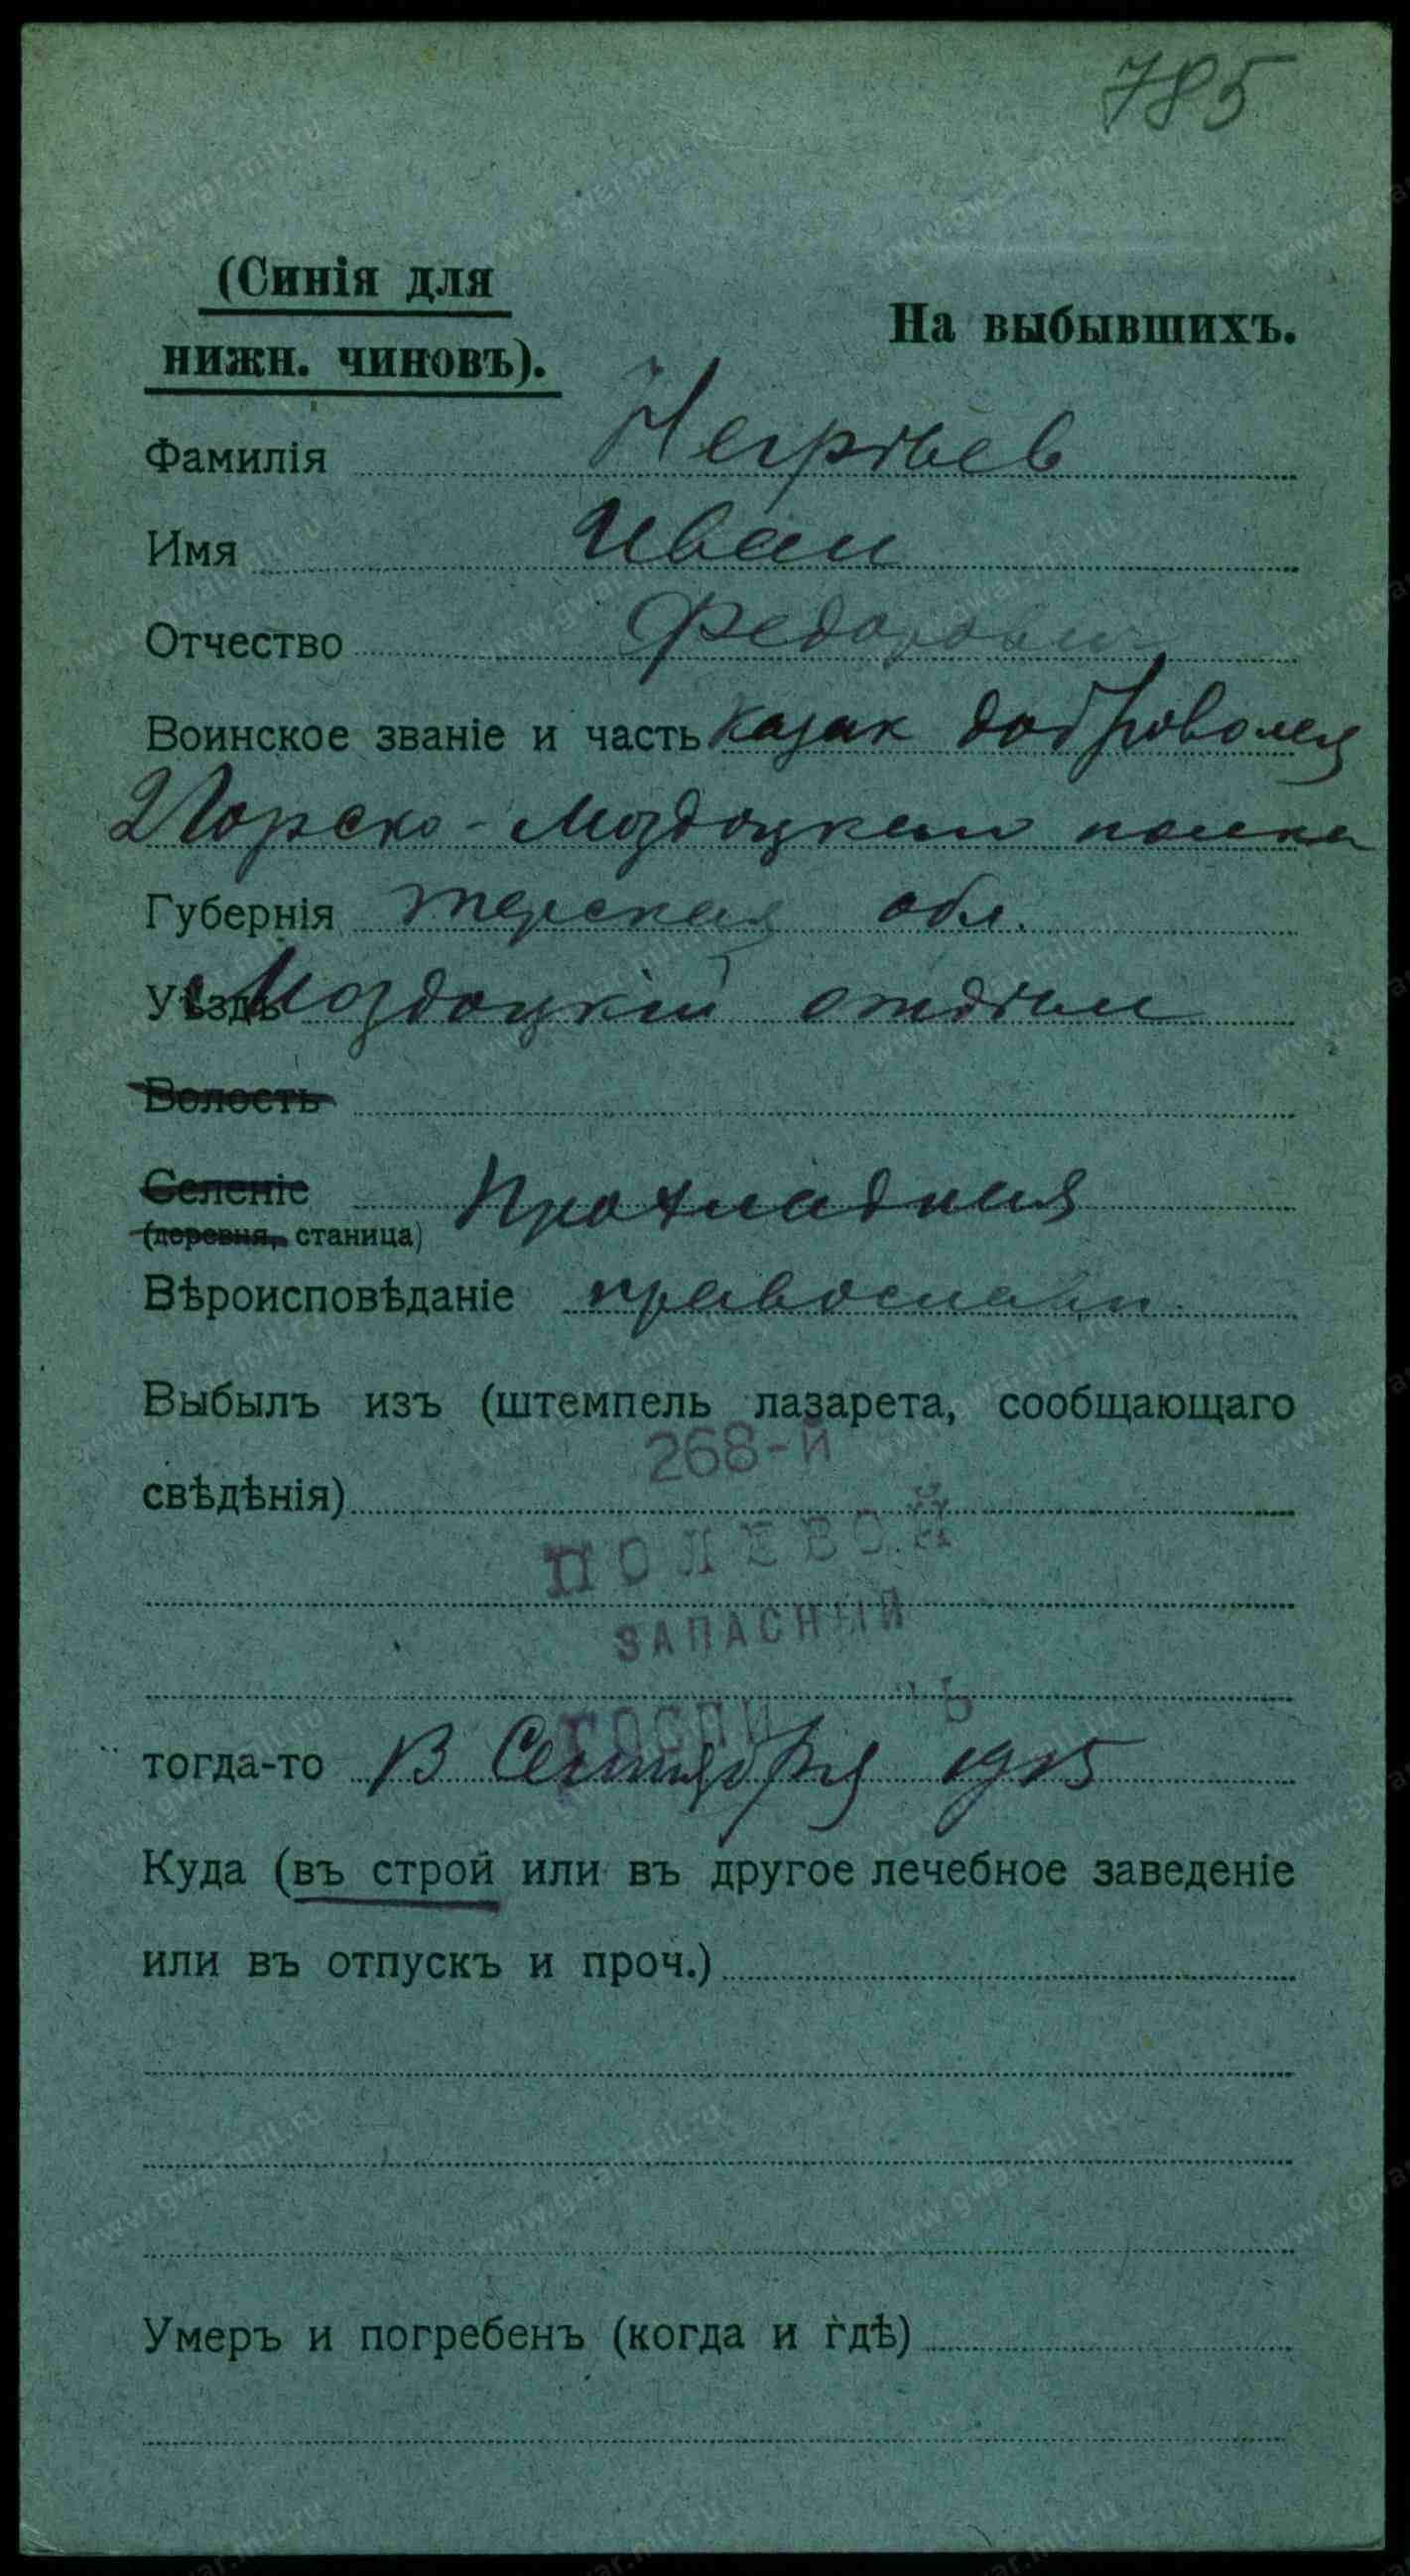 785
(Синія для
нижн. чиновъ).
На выбывшихъ.
Фамилія
Имя Иван
Отчество Федоров
Воинское званіе и часть казак доброволец
Моздоцкаго полка
Губернія Терская обл.
Уѣздъ Моздоцкій отдѣл
Волость
Селеніе Прохладная
(деревня, станица)
Вѣроисповѣданіе православн.
Выбылъ изъ (штемпель лазарета, сообщающаго
268-й
свѣдѣнія)
ПОЛЕВОЙ
ЗАПАСНЫЙ
тогда-то 13 Сентября 1915
Куда (въ строй или въ другое лечебное заведеніе
или въ отпускъ и проч.)
Умеръ и погребенъ (когда и гдѣ)
www.gwar.mil.ru